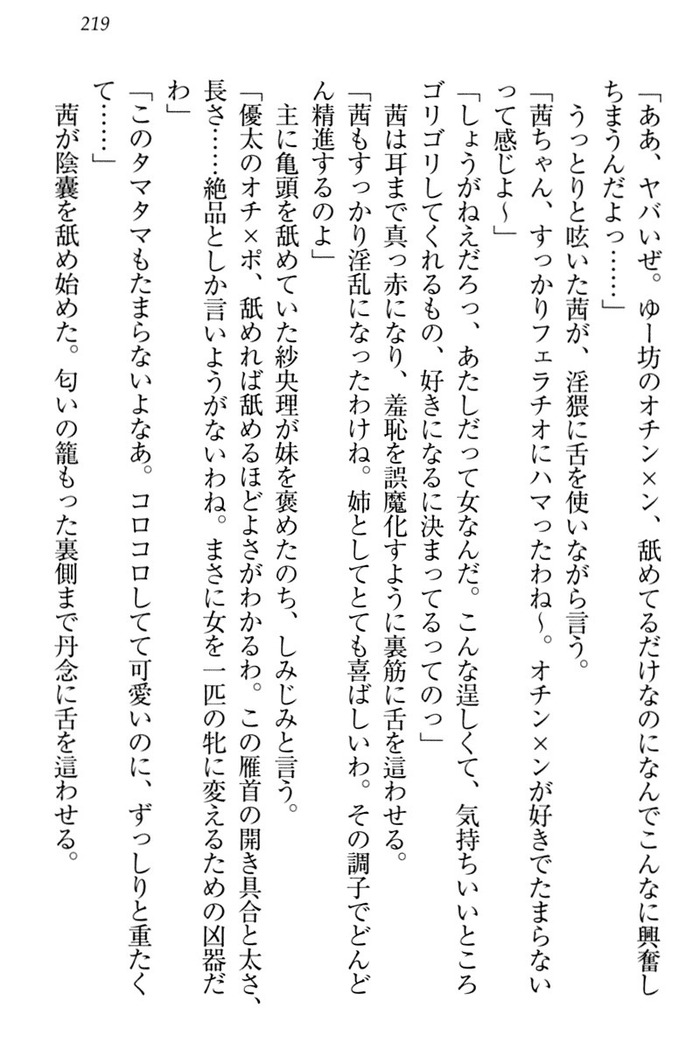 219
「ああ、ヤバいぜ。ゆー坊のオチン×ン、舐めてるだけなのになんでこんなに興奮し
ちまうんだよっ……」
うっとりと呟いた茜が、淫猥に舌を使いながら言う。
「茜ちゃん、すっかりフェラチオにハマったわね〜。オチン×ンが好きでたまらない
って感じよ〜」
「しょうがねえだろっ、あたしだって女なんだ。こんな逞しくて、気持ちいいところ
ゴリゴリしてくれるもの、好きになるに決まってるってのっ」
茜は耳まで真っ赤になり、羞恥を誤魔化すように裏筋に舌を這わせる。
「茜もすっかり淫乱になったわけね。姉としてとても喜ばしいわ。その調子でどんど
ん精進するのよ」
主に亀頭を舐めていた紗央理が妹を褒めたのち、しみじみと言う。
「優太のオチ×ポ、舐めれば舐めるほどよさがわかるわ。この雁首の開き具合と太さ、
長さ……絶品としか言いようがないわね。まさに女を一匹の牝に変えるための凶器だ
わ」
「このタマタマもたまらないよなあ。コロコロしてて可愛いのに、ずっしりと重たく
て……」
茜が陰嚢を舐め始めた。匂いの籠もった裏側まで丹念に舌を這わせる。